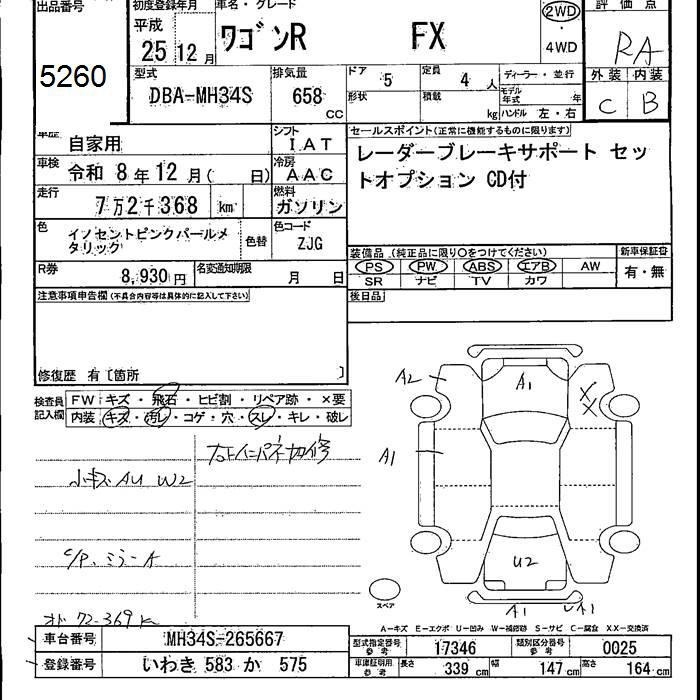 出品番号
5260
初度登録年月
平成
25年12月
車名・グレード
ワゴンR FX
2WD
4WD
評価点
RA
外装 内装
C B
型式
DBA-MH34S
排気量
658 cc
ドア 5
定員 4 人
形状
積載 kg
ディーラー・並行
モデル年式 年
ハンドル 左・右
車歴 自家用
シフト IAT
車検 令和 8年12月( 日)
冷房 AAC
走行 7万2千368 km
燃料 ガソリン
色 イノセントピンクパールメタリック
色替
色コード ZJG
R券 8,930円
名変通知期限 月 日
セールスポイント(正常に機能するものに限ります)
レーダーブレーキサポート セッ
トオプション CD付
装備品(純正品に限り○をつけてください)
新車保証書
PS PW ABS エアB AW
SR ナビ TV カワ
有・無
後日品
注意事項申告欄(不具合内容等は具体的に記入して下さい)
修復歴 有〔箇所 〕
検査員記入欄
FW キズ・飛石・ヒビ割・リペア跡・×要
内装 キズ・汚レ・コゲ・穴・スレ・キレ・破レ
小キズ AU W2
C/P、ミラーA
オド 72-369K
A2
A1
A1
XX
U2
A1
UA1
スペア
A-キズ E-エクボ U-凹み W-補修跡 S-サビ C-腐食 XX-交換済
車台番号 MH34S-265667
登録番号 いわき 583 か 575
型式指定番号 参考 17346
類別区分番号 参考 0025
車庫証明用 参考 長さ 339cm 幅 147cm 高さ 164cm